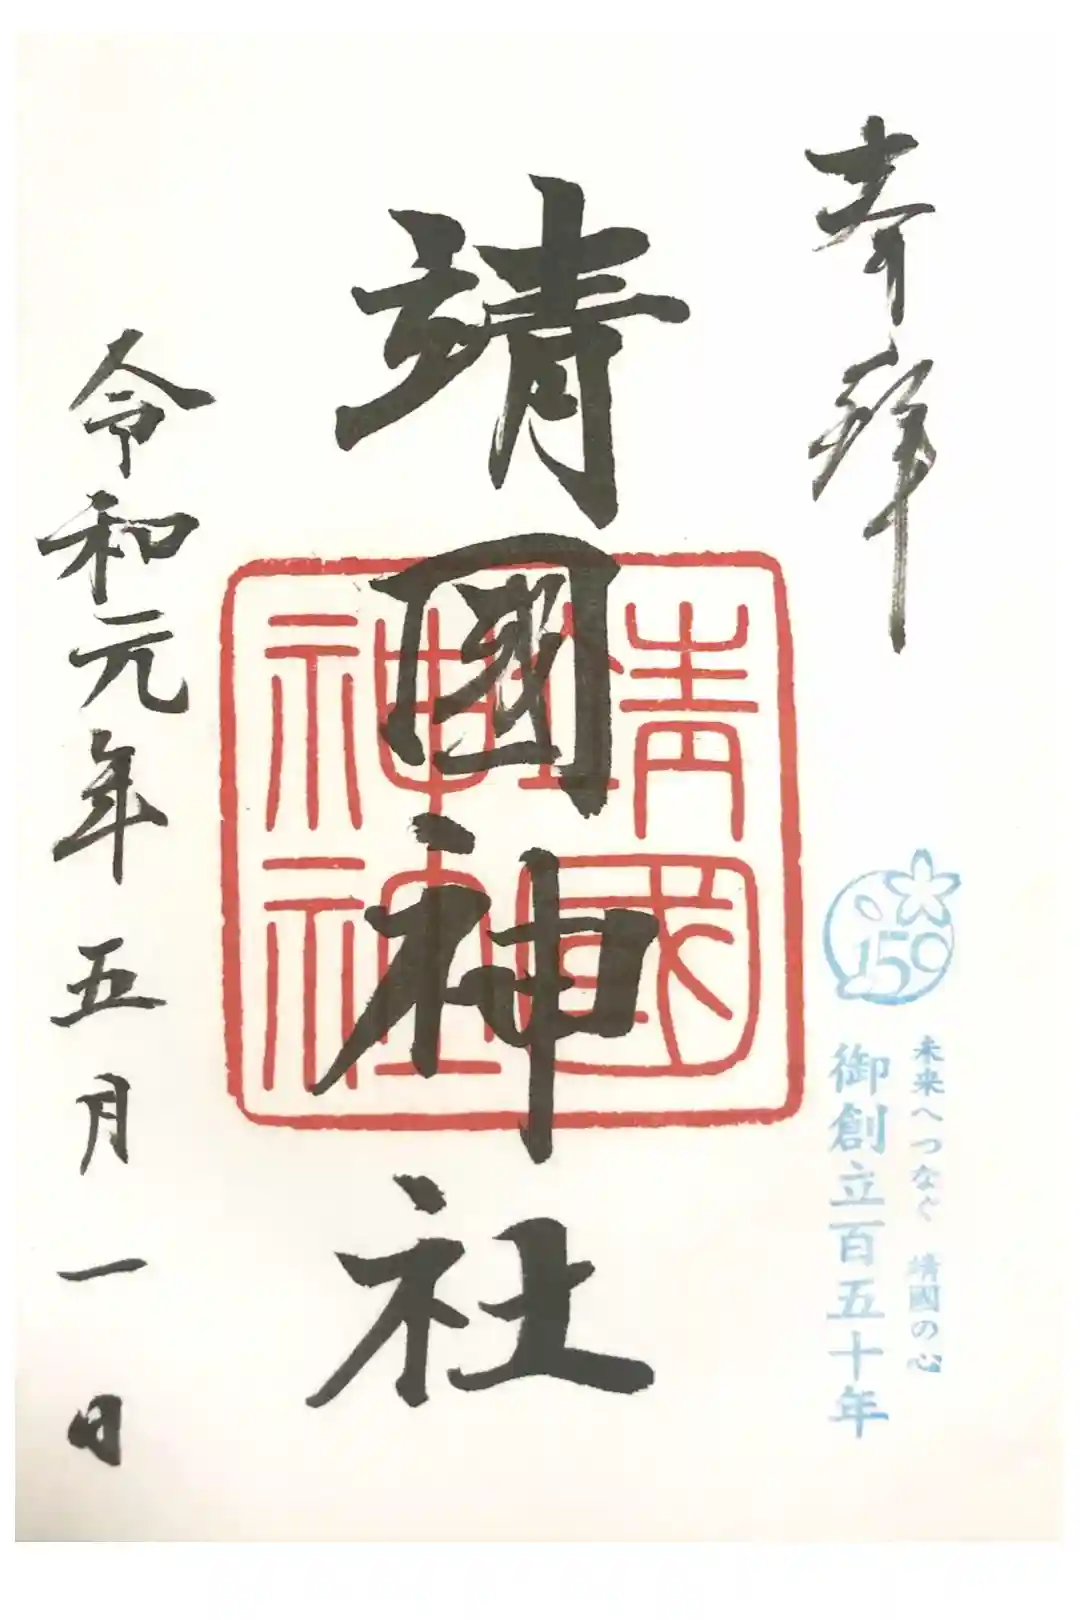 奉拝
150
未来へつなぐ 靖國の心
御創立百五十年
靖國神社
靖國
神社
令和元年五月一日